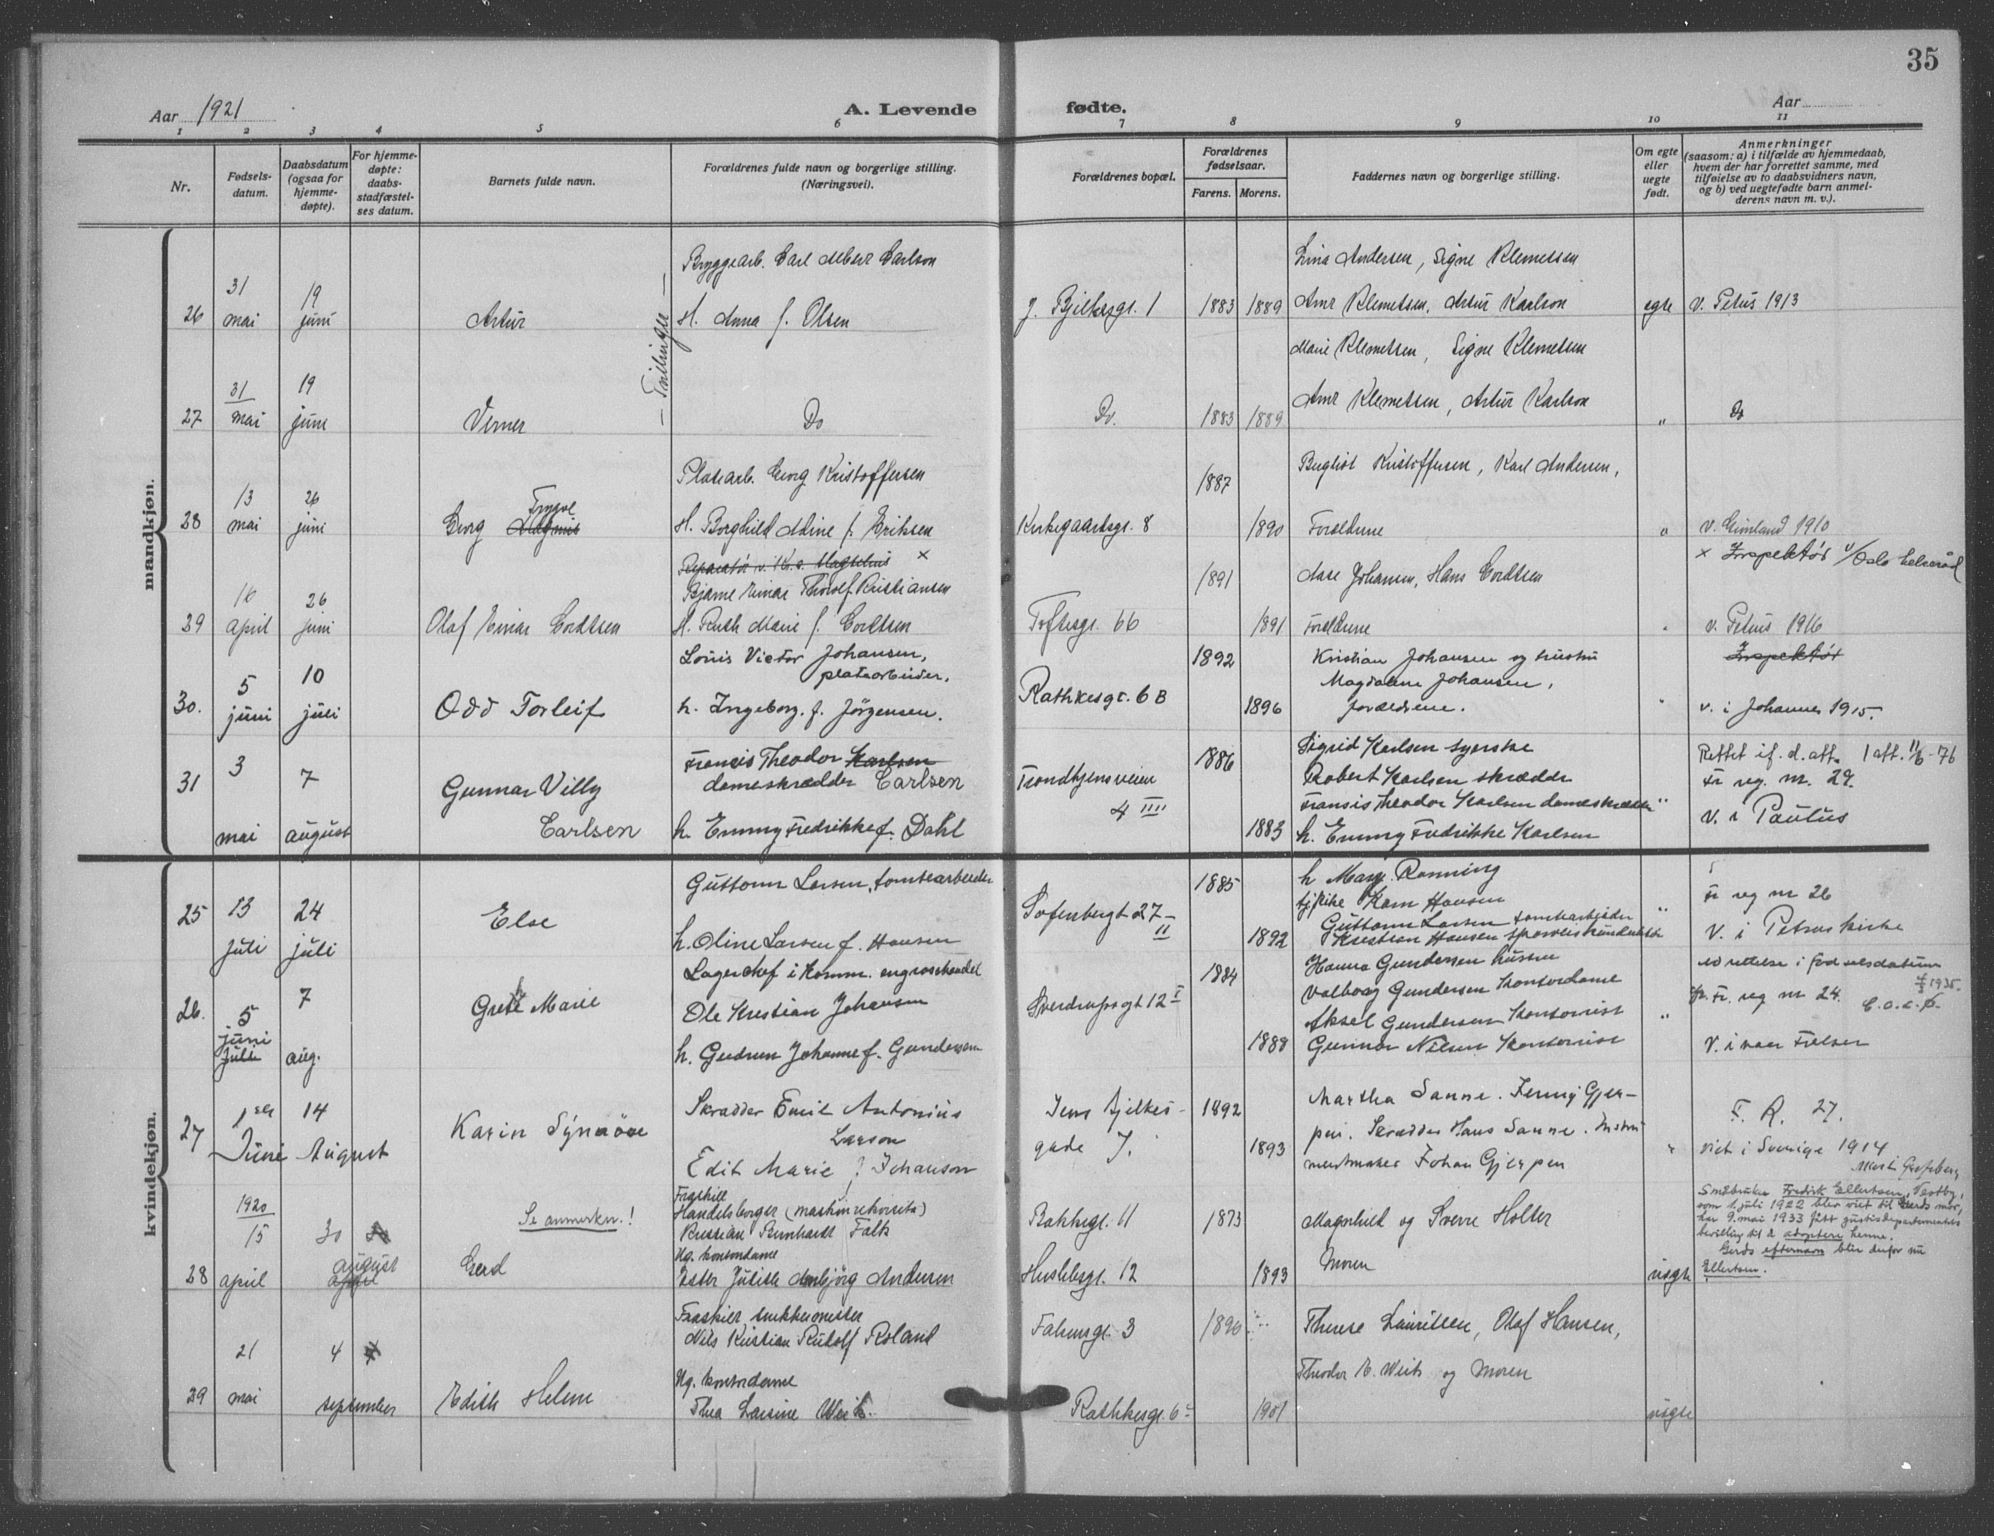 35
Aar 1921
A. Levende fødte.
Aar
1 2 3 4 5 6 7 8 9 10 11
Nr.
Fødsels-
datum.
Daabsdatum
(ogsaa for
hjemme-
døpte).
For hjemme-
døpte:
daabs-
stadfæstel-
ses datum.
Barnets fulde navn.
Forældrenes fulde navn og borgerlige stilling.
(Næringsvei).
Forældrenes bopæl.
Forældrenes
fødselsaar.
Farens. Morens.
Faddernes navn og borgerlige stilling.
Om egte
eller
uegte
født.
Anmerkninger
(saasom: a) i tilfælde av hjemmedaab,
hvem der har forrettet samme, med
tilføielse av to daabsvidners navn,
og b) ved uegtefødte barn anmel-
derens navn m. v.).
mandkjøn.
Bryggearb. Carl Albert Carlson
Lina Andersen, Signe Klemetsen
31 19
26 mai juni Artur H. Anna f. Olsen J. Bjelkesgt. 1 1883 1889 Klemetsen, Artur Karlson egte v. Petrus 1913
— Tvillinger —
Marie Klemetsen, Signe Klemetsen
31 19
27 mai juni Verner Do Do. 1883 1889 Klemetsen, Artur Karlson " Do
Platearb. Georg Kristoffersen 1887 Kristoffersen, Karl Andersen,
13 26 Trygve
28 mai juni Georg H. Borghild Aline f. Eriksen Kirkegaardsgt. 8 1890 Forældrene v. Grønland 1910
Reparatør v. Kr.a. × × Inspektør v/Oslo helseråd
Bjarne Einar Thorolf Kristiansen 1891 Aase Johansen, Hans Cordtsen
16 26
29 april juni Olaf Einar Cordtsen H. Ruth Marie f. Cordtsen Toftesgt. 66 1891 Forældrene v. Petrus 1916
Louis Victor Johansen, 1892 Kristian Johansen og hustru Inspektør
platearbeider. Magdalene Johansen,
5 10
30. juni juli Odd Torleif h. Ingeborg f. Jörgensen. Rathkesgt. 6 B 1896 forældrene. " v. i Johannes 1915.
Francis Theodor Karlsen 1886 Sigrid Karlsen syerske Rettet if. d. att. 1 aft. 11/6-76
31 3 7 Gunnar Villy dameskrædder Carlsen Trondhjemsveien Robert Karlsen skrædder Fr reg. nr. 29.
4 IIII Fransis Theodor Karlsen dameskrædder "
mai august Carlsen h. Emmy Fredrikke f. Dahl 1883 h. Emmy Fredrikke Karlsen v. i Paulus
kvindekjøn.
Guttorm Larsen, tomtearbeider 1885 h Mary Rønning
25 13 24 Else Sofienbergt 27 – Karn Hansen Fr reg nr 26
II Guttorm Larsen tomtearbeider "
juli juli h. Oline Larsen f. Hansen 1892 Kristian Hansen V. i Petrus kirke
Lagerchef i Komm. engroshandel 1884 Hanna Gundersen hustru rettelse i fødselsdatum
26. 5 7 Grete Marie Ole Kristian Johansen Sverdrupsgt 12 I Valborg Gundersen Kontordame Fr. reg nr 24. 1935.
juni Aksel Gundersen Kontorist "
juli aug. h. Gudrun Johanne f. Gundersen 1888 Gunnar Nilsen Kontorist V. i vaar Frelser
1ste 14 Skrædder Emil Antonius Jens Bjelkes- 1892 Martha Sanne. Jenny Gjer- F. R. 27.
27 Karin Synnöve Larson gade 7. pen. Skrædder Hans Sanne. Instru
Juni August Edit Marie f. Johanson 1893 mentmaker Johan Gjerpen " viet i Sverige 1914
Fraskilt Småbruker Fredrik Ellertsen, Vestby,
1920 Se anmerkn.! Handelsborger (maskinrekvisita) som 1. juli 1922 blev viet til Gerds mor,
15 30 Kristian Bernhardt Falk Rathkesgt. 11 1873 Magnhild og Sverre Holter har 9. mai 1933 fått justisdepartementets
Ug. kontordame bevilling til å adoptere henne.
august Gerds efternavn blir derfor nu
28 april april Gerd Ester Judith Andersen 12 1893 Moren uegte Ellertsen.
Fraskilt snekkermester
21 4 Nils Kristian Rudolf Roland 3 1890 Therese Lauritsen, Olaf Hansen,
Ug. kontordame og Moren
29 mai september Edith Helene Thea Larsine Rathkesgt. 6 1901 uegte